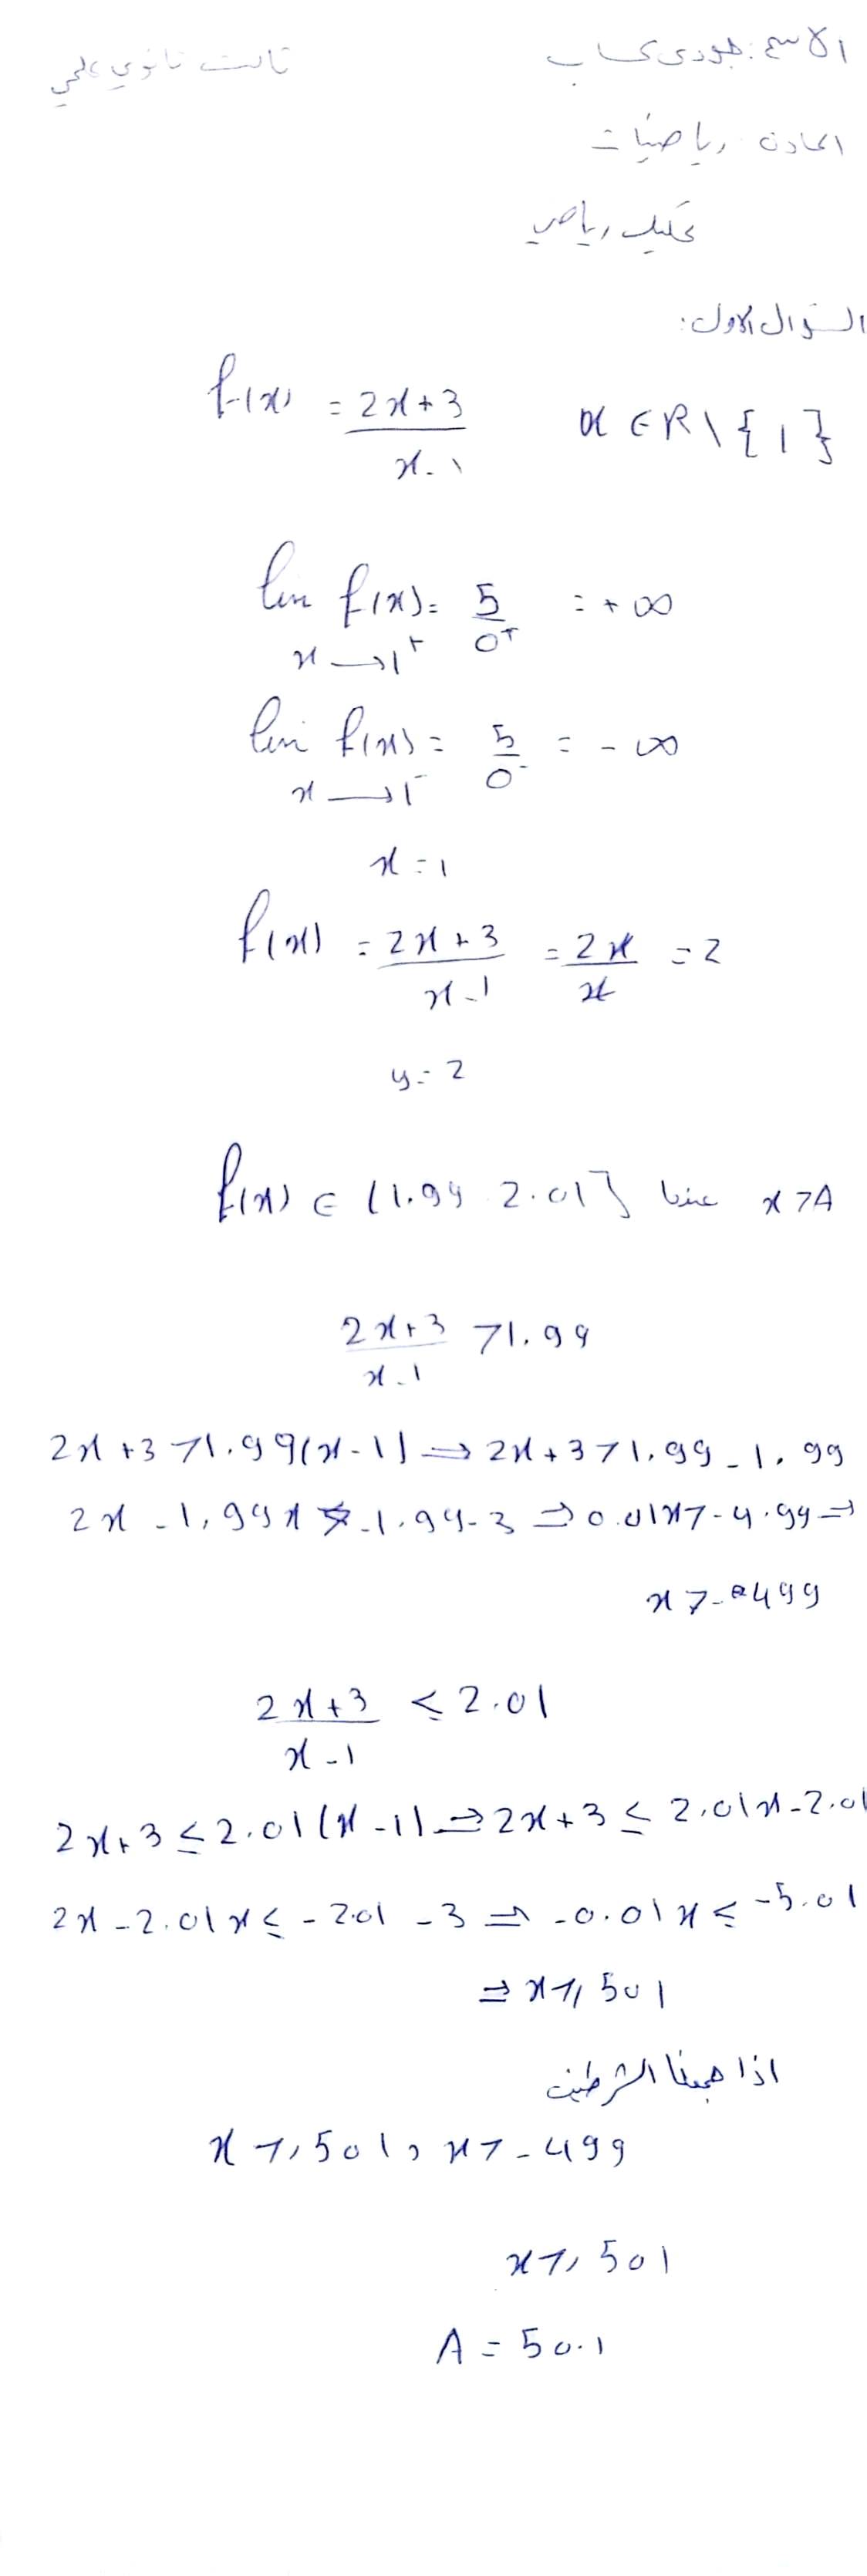 الاسم: جودي كساب ثالث ثانوي علمي
المادة رياضيات
تحليل رياضي
السؤال الاول:
f(x) = (2x+3)/(x-1) x ∈ R \ {1}
lim f(x) = 5/0⁺ = +∞
x → 1⁺
lim f(x) = 5/0⁻ = -∞
x → 1⁻
x = 1
f(x) = (2x+3)/(x-1) = 2x/x = 2
y = 2
f(x) ∈ (1.99 2.01] عندما x > A
(2x+3)/(x-1) > 1.99
2x+3 > 1.99(x-1) ⇒ 2x+3 > 1.99 - 1.99
2x - 1.99x > -1.99-3 ⇒ 0.01x > -4.99 ⇒
x > -499
(2x+3)/(x-1) ≤ 2.01
2x+3 ≤ 2.01(x-1) ⇒ 2x+3 ≤ 2.01x-2.01
2x-2.01x ≤ -2.01-3 ⇒ -0.01x ≤ -5.01
⇒ x ≥ 501
اذا جمعنا الشرطين
x ≥ 501 , x > -499
x ≥ 501
A = 50.1